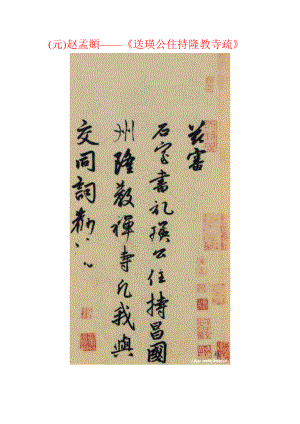 (元)赵孟頫——《送瑛公住持隆教寺疏》
兹審
石室書記瑛公住持昌國
州隆教禪寺凡我與
交同詞勸請